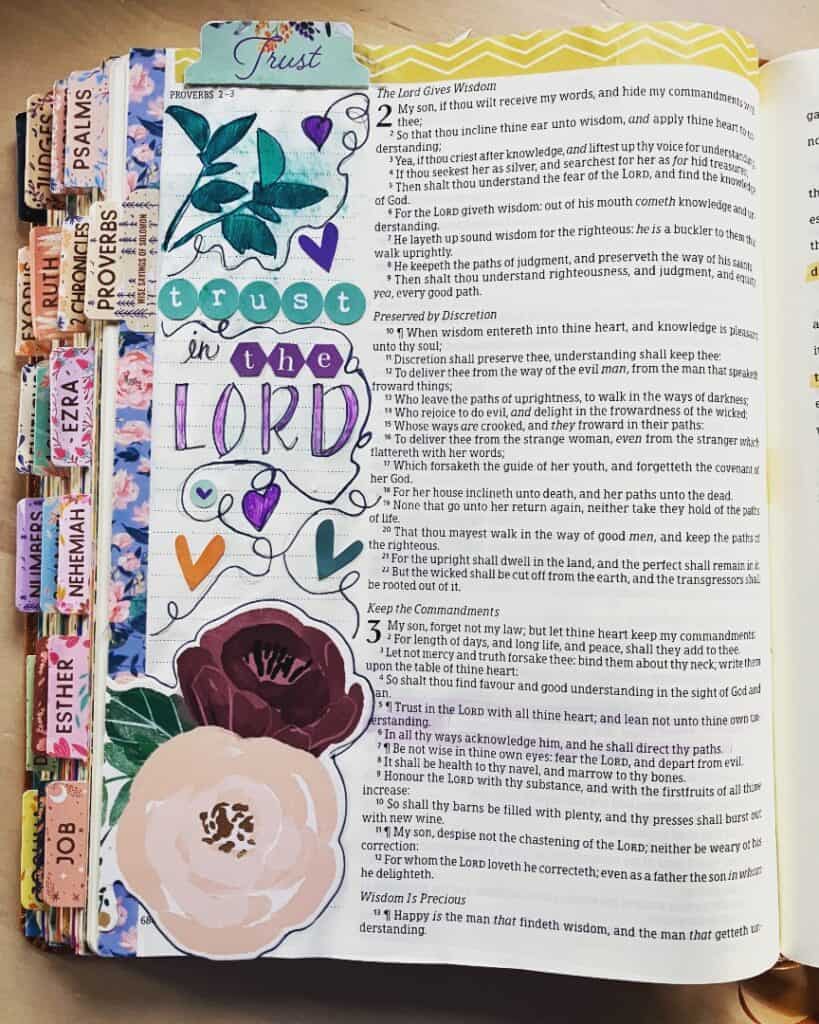 Trust
PROVERBS 2–3
trust
in the
LORD
PSALMS
JUDGES
PROVERBS
WISE SAYINGS OF SOLOMON
2 CHRONICLES
RUTH
EXODUS
EZRA
NEHEMIAH
NUMBERS
ESTHER
JOB
The Lord Gives Wisdom
2 My son, if thou wilt receive my words, and hide my commandments with
thee;
2 So that thou incline thine ear unto wisdom, and apply thine heart to
derstanding;
3 Yea, if thou criest after knowledge, and liftest up thy voice for understanding;
4 If thou seekest her as silver, and searchest for her as for hid treasures;
5 Then shalt thou understand the fear of the LORD, and find the knowledge
of God.
6 For the LORD giveth wisdom: out of his mouth cometh knowledge and un-
derstanding.
7 He layeth up sound wisdom for the righteous: he is a buckler to them that
walk uprightly.
8 He keepeth the paths of judgment, and preserveth the way of his saints.
9 Then shalt thou understand righteousness, and judgment, and equity;
yea, every good path.
Preserved by Discretion
10 ¶ When wisdom entereth into thine heart, and knowledge is pleasant
unto thy soul;
11 Discretion shall preserve thee, understanding shall keep thee:
12 To deliver thee from the way of the evil man, from the man that speaketh
froward things;
13 Who leave the paths of uprightness, to walk in the ways of darkness;
14 Who rejoice to do evil, and delight in the frowardness of the wicked;
15 Whose ways are crooked, and they froward in their paths:
16 To deliver thee from the strange woman, even from the stranger which
flattereth with her words;
17 Which forsaketh the guide of her youth, and forgetteth the covenant of
her God.
18 For her house inclineth unto death, and her paths unto the dead.
19 None that go unto her return again, neither take they hold of the paths
of life.
20 That thou mayest walk in the way of good men, and keep the paths of
the righteous.
21 For the upright shall dwell in the land, and the perfect shall remain in it.
22 But the wicked shall be cut off from the earth, and the transgressors shall
be rooted out of it.
Keep the Commandments
3 My son, forget not my law; but let thine heart keep my commandments:
2 For length of days, and long life, and peace, shall they add to thee.
3 Let not mercy and truth forsake thee: bind them about thy neck; write them
upon the table of thine heart:
4 So shalt thou find favour and good understanding in the sight of God and
an.
5 ¶ Trust in the LORD with all thine heart; and lean not unto thine own un-
erstanding.
6 In all thy ways acknowledge him, and he shall direct thy paths.
7 ¶ Be not wise in thine own eyes: fear the LORD, and depart from evil.
8 It shall be health to thy navel, and marrow to thy bones.
9 Honour the LORD with thy substance, and with the firstfruits of all thine
increase:
10 So shall thy barns be filled with plenty, and thy presses shall burst out
with new wine.
11 ¶ My son, despise not the chastening of the LORD; neither be weary of his
correction:
12 For whom the LORD loveth he correcteth; even as a father the son in whom
he delighteth.
Wisdom Is Precious
13 ¶ Happy is the man that findeth wisdom, and the man that getteth un-
derstanding.